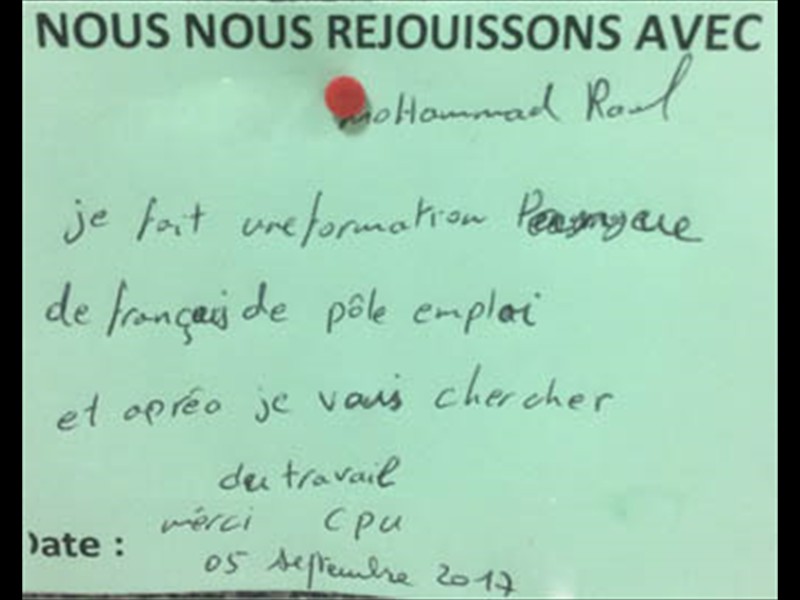 NOUS NOUS REJOUISSONS AVEC
moHammad Raul
je fait une formation
de français de pôle emploi
et aprés je vais chercher
du travail
mérci CPU
Date :
05 septembre 2017